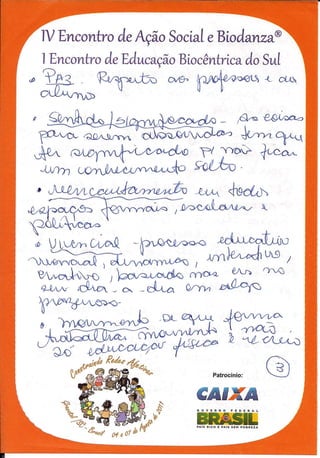 IV Encontro de Ação Social e Biodanza®
I Encontro de Educação Biocêntrica do Sul
• PA3. Respeito aos professores e aos
alunos
• Sentido/significado - As coisas
para serem absorvidas tem que
ter significado p/ não ficar
um conhecimento solto.
• reencantamento em todos
espaços formais, escolares e
políticas.
• Vivencial - processo educativo
vivencial, dinâmico, interativo,
criativo, baseado nas
seu dia-a-dia em algo
prazeroso.
• movimento de que forma
trabalhar movimento não
só educação física e recreio
3
Construindo Redes Afetivas
Brasil 04 a 07 de Agosto de 2011
Patrocínio:
CAIXA
GOVERNO FEDERAL
BRASIL
PAÍS RICO É PAÍS SEM POBREZA